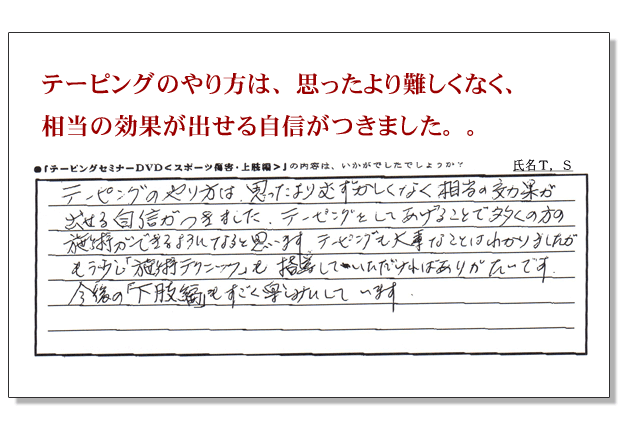 テーピングのやり方は、思ったより難しくなく、
相当の効果が出せる自信がつきました。。
●「テーピングセミナーDVD＜スポーツ傷害・上肢編＞」の内容は、いかがでしたでしょうか？ 氏名T，S
テーピングのやり方は、思ったよりむずかしくなく相当の効果が
出せる自信がつきました．テーピングをしてあげることで多くの方の
施術ができるようになると思います テーピングも大事なことはわかりましたが
もう少し「施術テクニック」も 指導していただければありがたいです．
今後の「下肢編」もすごく楽しみにしています．